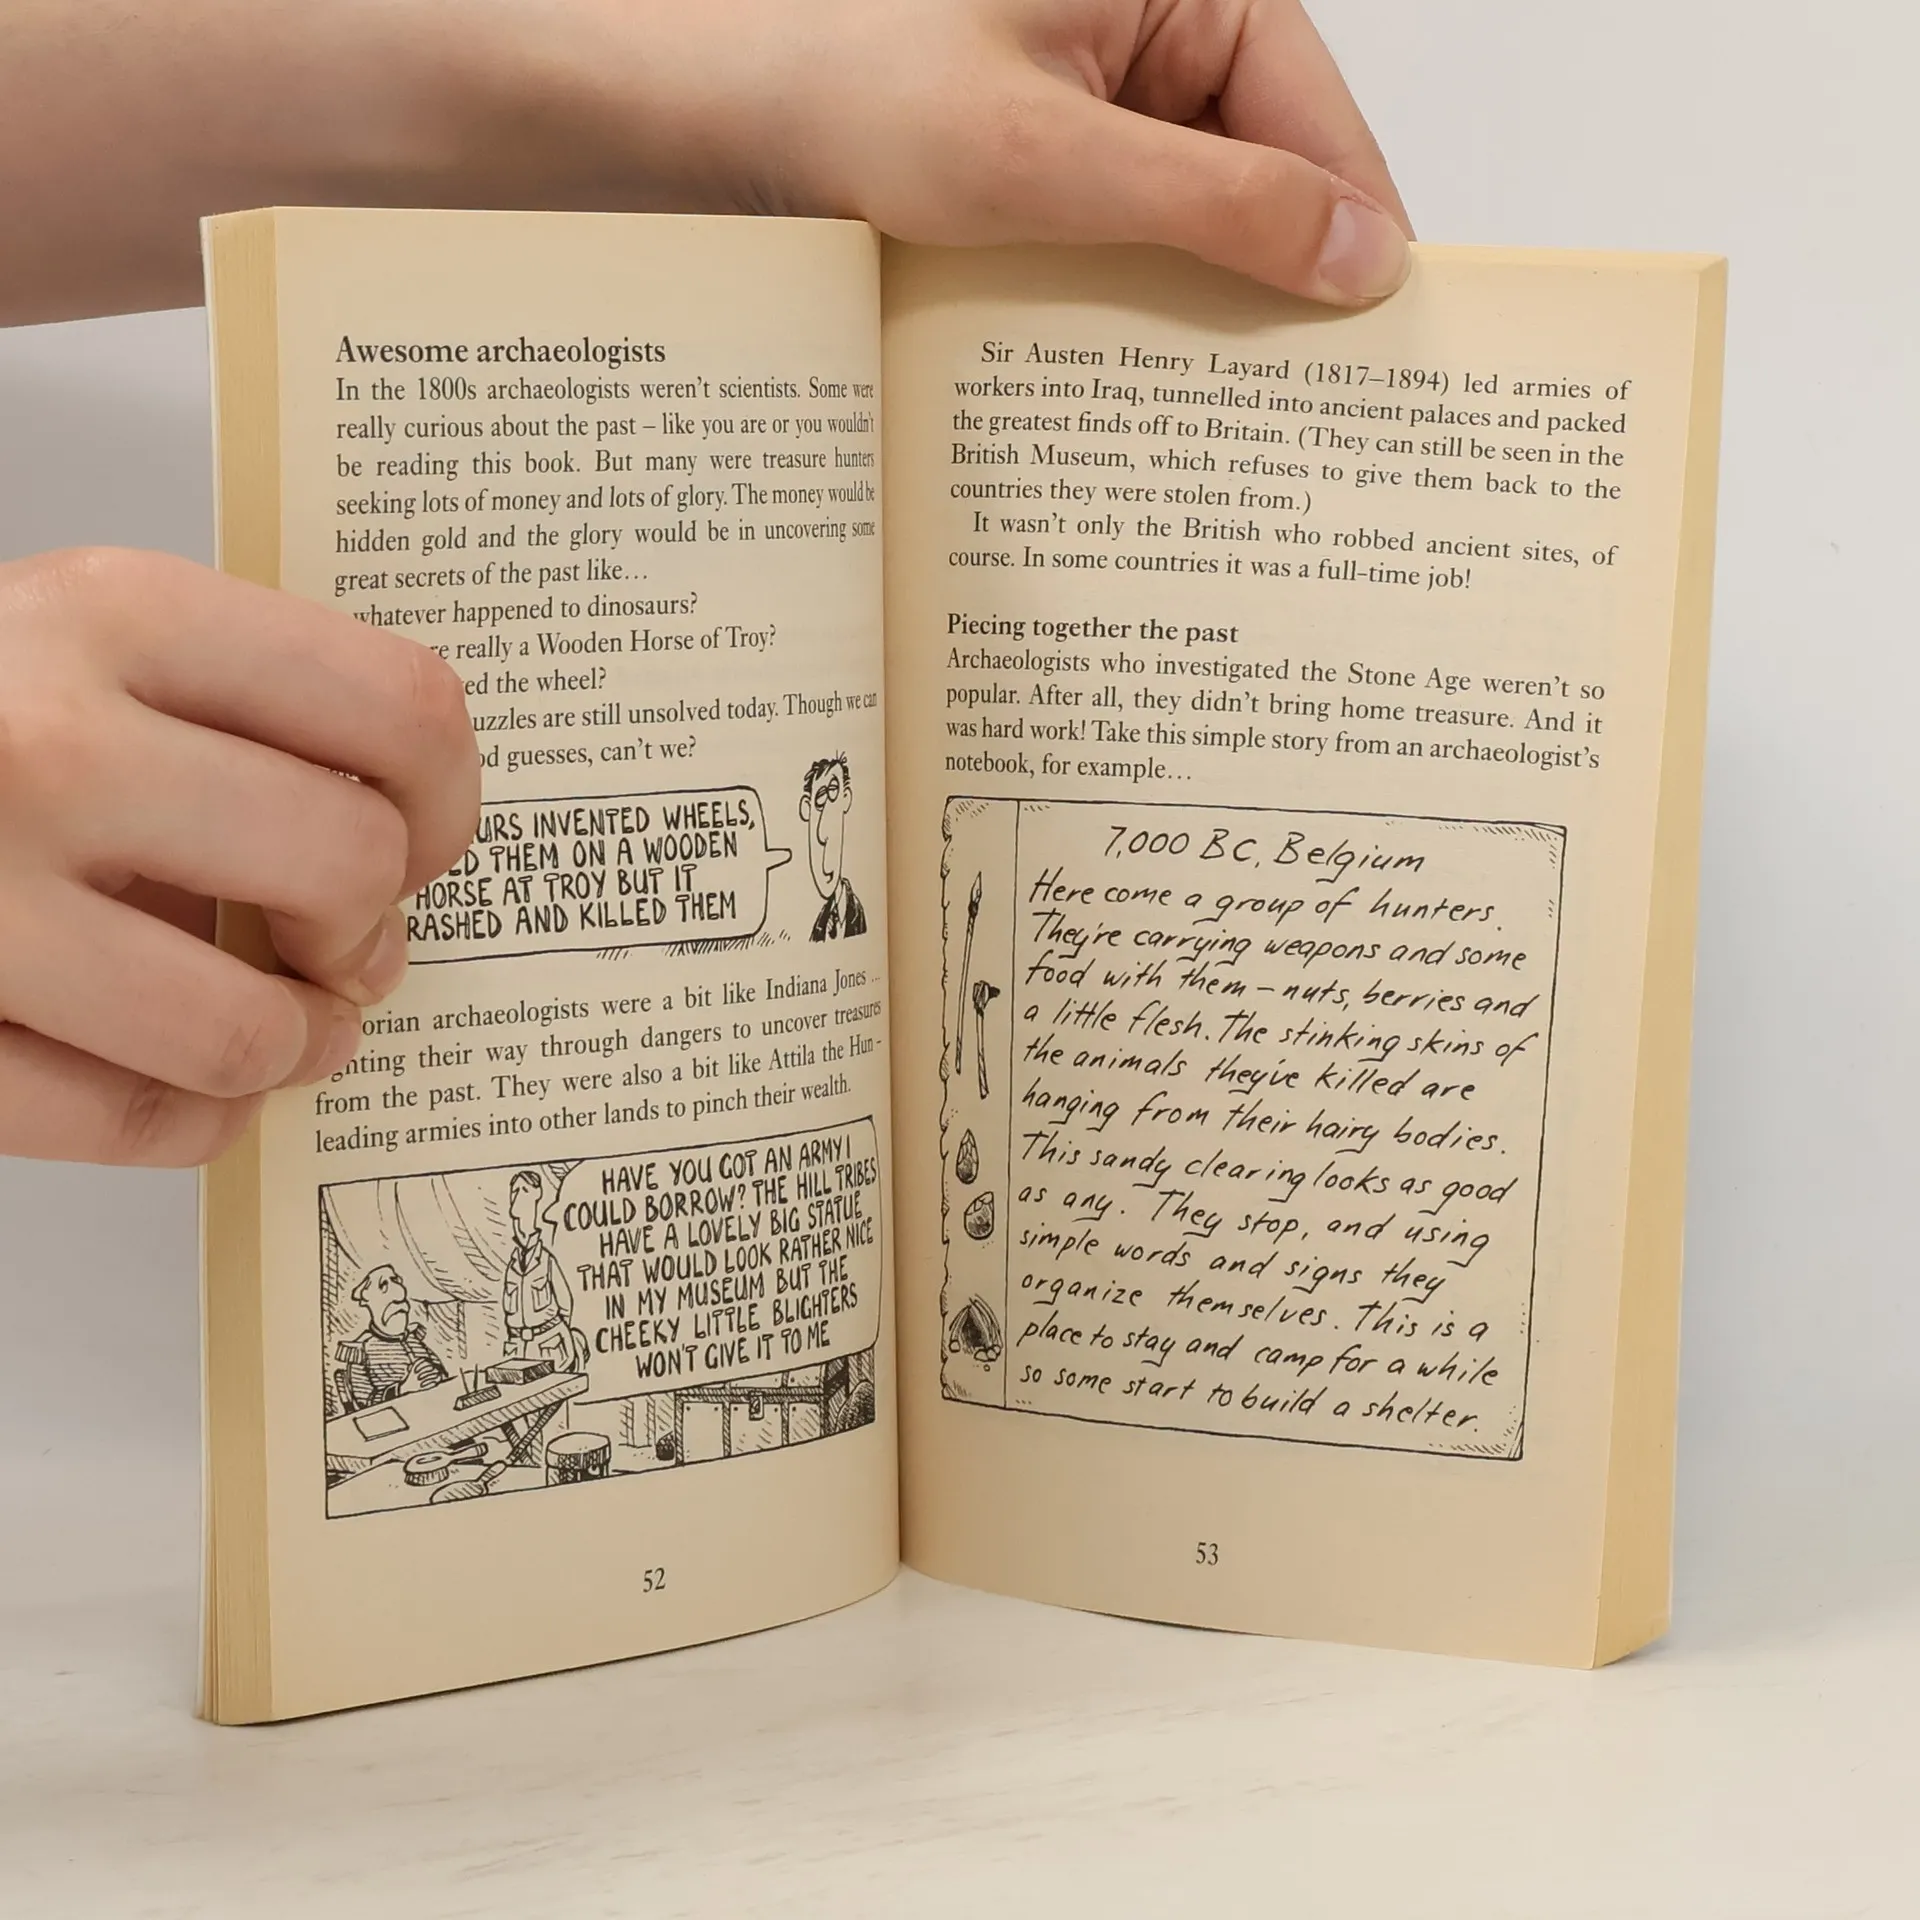 Awesome archaeologists
In the 1800s archaeologists weren't scientists. Some were
really curious about the past – like you are or you wouldn't
be reading this book. But many were treasure hunters
seeking lots of money and lots of glory. The money would be
hidden gold and the glory would be in uncovering some
great secrets of the past like…
whatever happened to dinosaurs?
really a Wooden Horse of Troy?
the wheel?
are still unsolved today. Though we can
guesses, can't we?
INVENTED WHEELS,
THEM ON A WOODEN
HORSE AT TROY BUT IT
AND KILLED THEM
archaeologists were a bit like Indiana Jones …
their way through dangers to uncover treasures
from the past. They were also a bit like Attila the Hun –
leading armies into other lands to pinch their wealth.
HAVE YOU GOT AN ARMY I
COULD BORROW? THE HILL TRIBES
HAVE A LOVELY BIG STATUE
THAT WOULD LOOK RATHER NICE
IN MY MUSEUM BUT THE
CHEEKY LITTLE BLIGHTERS
WON'T GIVE IT TO ME
52
Sir Austen Henry Layard (1817–1894) led armies of
workers into Iraq, tunnelled into ancient palaces and packed
the greatest finds off to Britain. (They can still be seen in the
British Museum, which refuses to give them back to the
countries they were stolen from.)
It wasn't only the British who robbed ancient sites, of
course. In some countries it was a full-time job!
Piecing together the past
Archaeologists who investigated the Stone Age weren't so
popular. After all, they didn't bring home treasure. And it
was hard work! Take this simple story from an archaeologist's
notebook, for example…
7,000 BC, Belgium
Here come a group of hunters.
They're carrying weapons and some
food with them – nuts, berries and
a little flesh. The stinking skins of
the animals they've killed are
hanging from their hairy bodies.
This sandy clearing looks as good
as any. They stop, and using
simple words and signs they
organize themselves. This is a
place to stay and camp for a while
so some start to build a shelter.
53